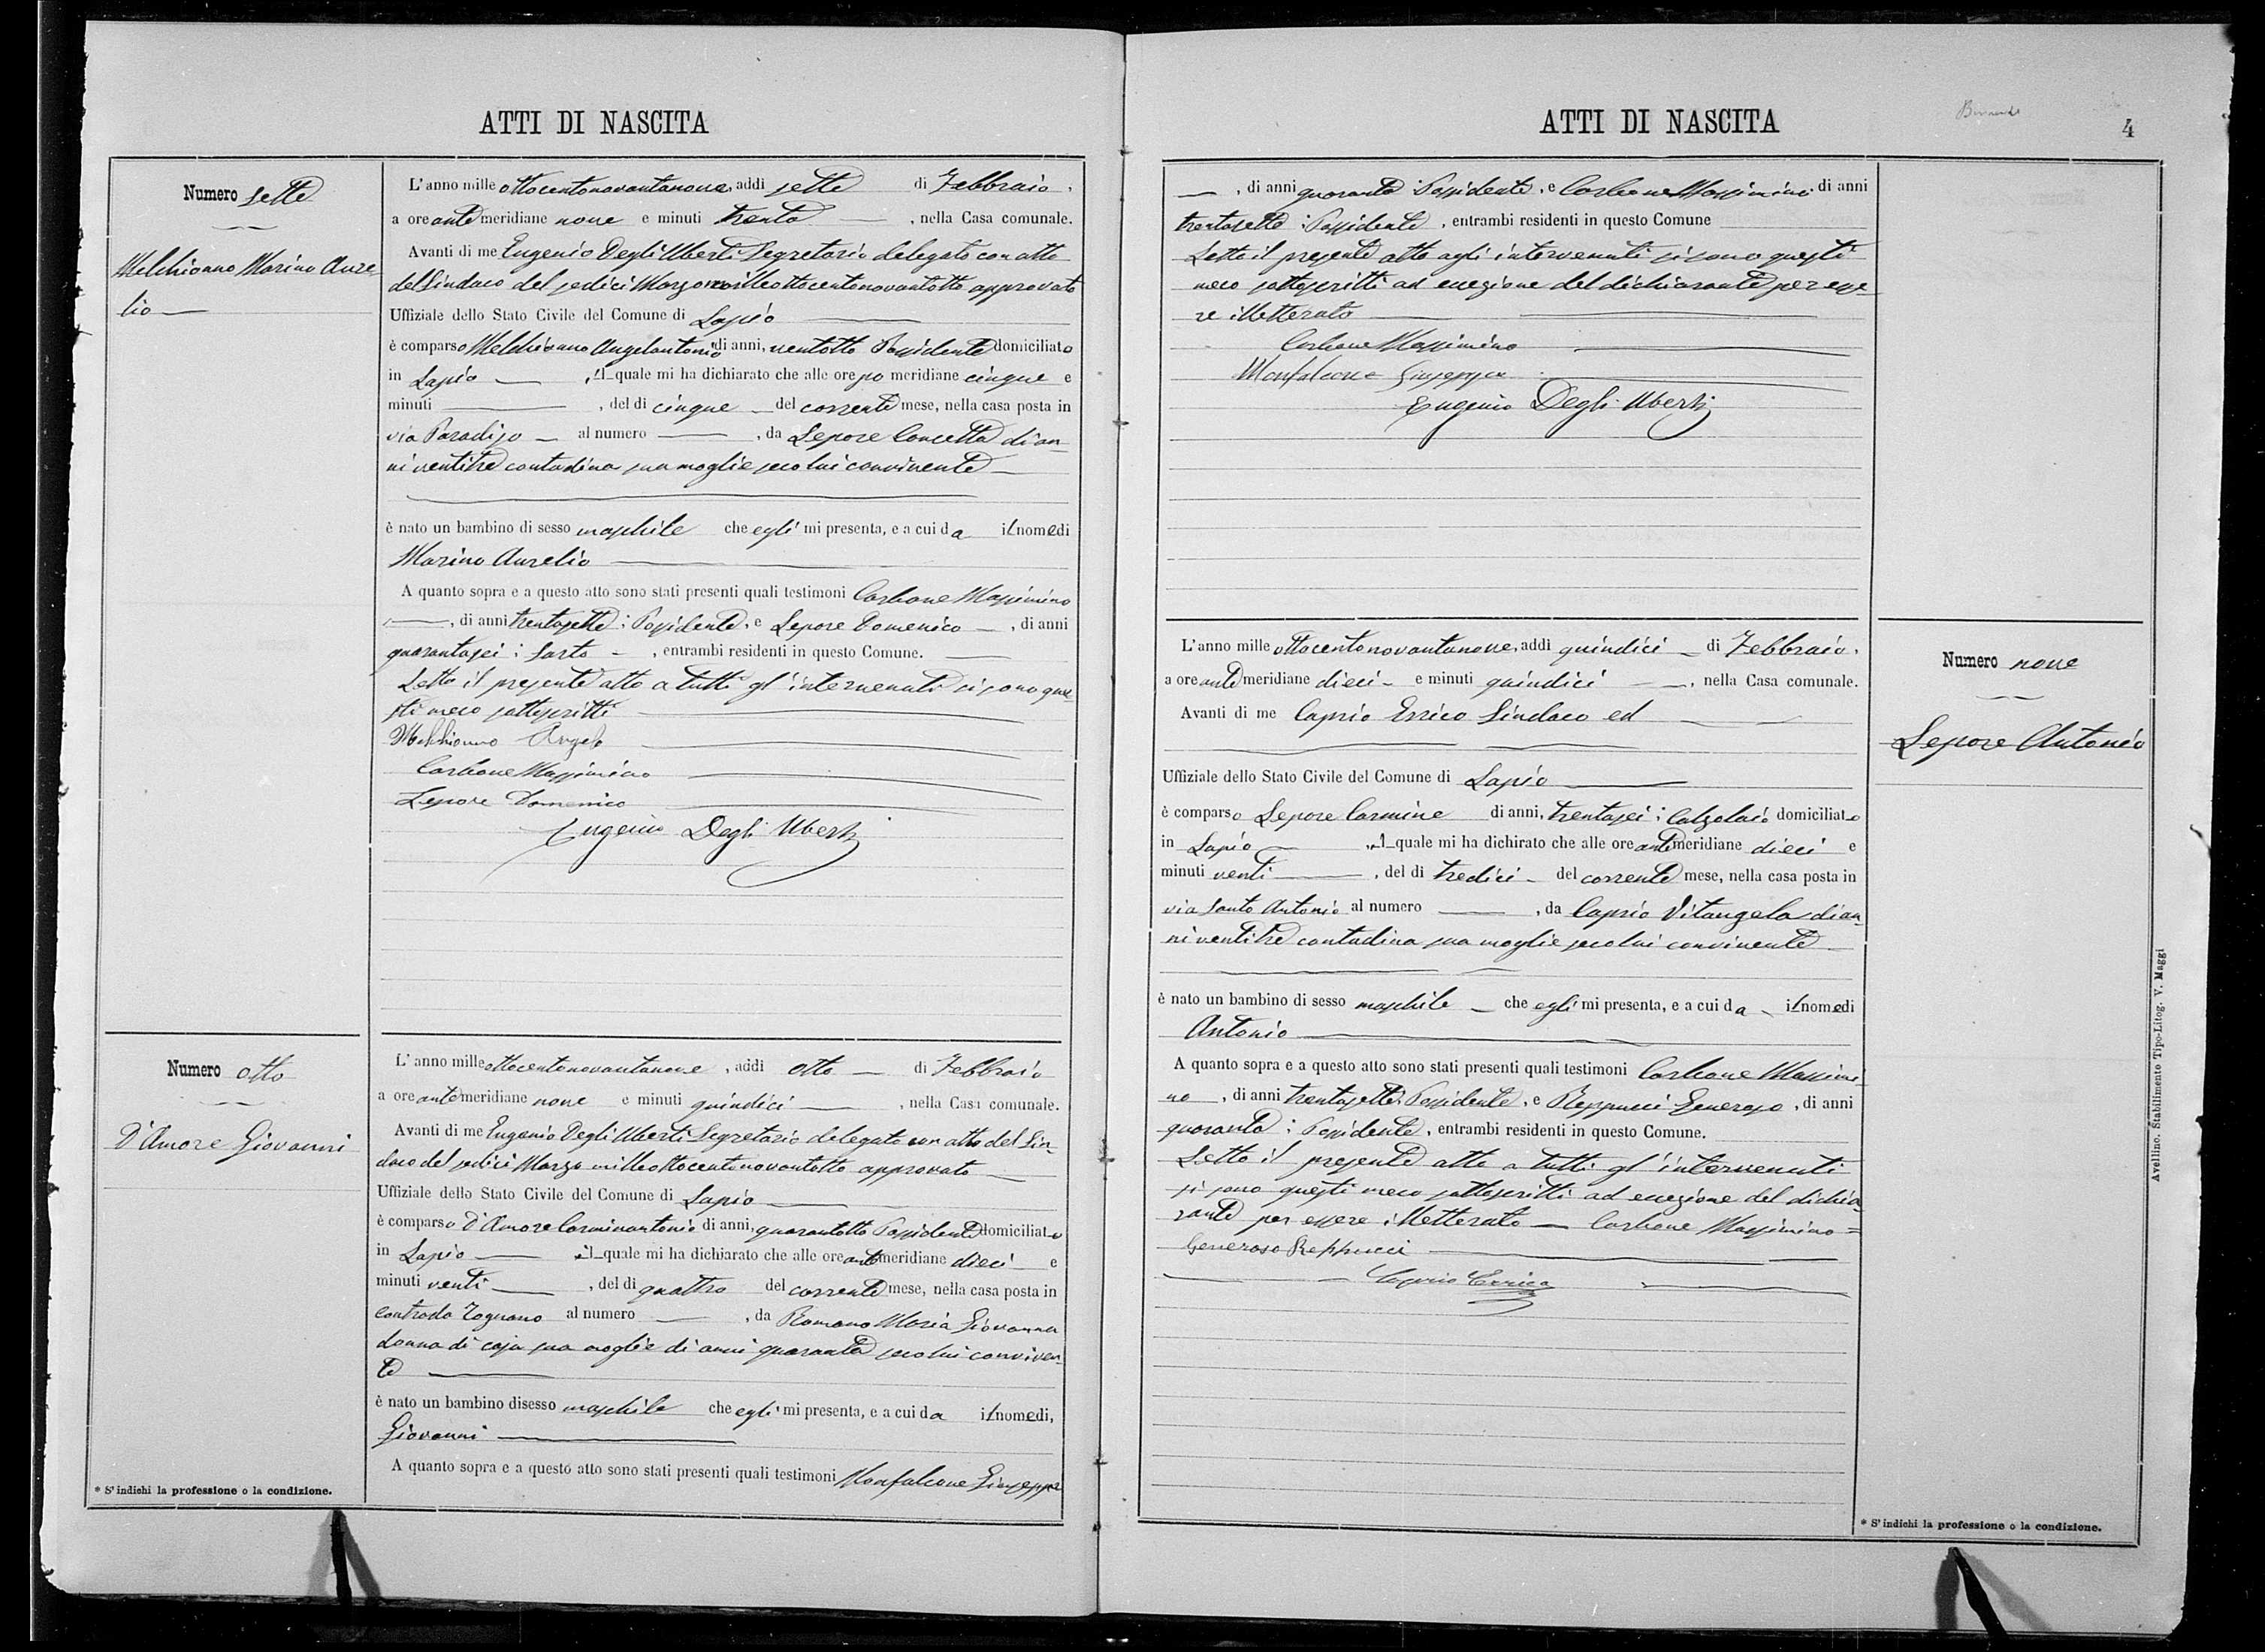 ATTI DI NASCITA
Numero sette
Melchionno Marino Aure-
lio
L'anno mille ottocentonovantanove, addi sette di Febbraio,
a ore antemeridiane nove e minuti trenta, nella Casa comunale.
Avanti di me Eugenio Degli Uberti Segretario delegato con atto
del Sindaco del sedici Marzo milleottocentonovantotto approvato
Uffiziale dello Stato Civile del Comune di Lapio
è comparso Melchionno Angelantonio di anni, ventotto Possidente domiciliato
in Lapio, il quale mi ha dichiarato che alle ore po meridiane cinque e
minuti , del dì cinque del corrente mese, nella casa posta in
via Paradiso al numero , da Lepore Concetta di an-
ni ventitre contadina sua moglie seco lui convivente
è nato un bambino di sesso maschile che egli mi presenta, e a cui da il nome di
Marino Aurelio
A quanto sopra e a questo atto sono stati presenti quali testimoni Carbone Massimino
, di anni trentasette; Possidente, e Lepore Domenico, di anni
quarantasei; Sarto, entrambi residenti in questo Comune.
Letto il presente atto a tutti gl'intervenuti si sono que-
sti meco sottoscritti
Melchionno Angelo
Carbone Massimino
Lepore Domenico
Eugenio Degli Uberti
Numero otto
D'Amore Giovanni
L'anno mille ottocentonovantanove, addi otto di Febbraio
a ore antemeridiane nove e minuti quindici, nella Casa comunale.
Avanti di me Eugenio Degli Uberti Segretario delegato con atto del Sin-
daco del sedici Marzo milleottocentonovantotto approvato
Uffiziale dello Stato Civile del Comune di Lapio
è comparso D'Amore Carminantonio di anni, quarantotto Possidente domiciliato
in Lapio il quale mi ha dichiarato che alle ore antemeridiane dieci e
minuti venti, del dì quattro del corrente mese, nella casa posta in
contrada Tognano al numero , da Romano Maria Giovanna
donna di casa sua moglie di anni quaranta seco lui conviven-
te
è nato un bambino di sesso maschile che egli mi presenta, e a cui da il nome di,
Giovanni
A quanto sopra e a questo atto sono stati presenti quali testimoni Monfalcone Giuseppe
* S'indichi la professione o la condizione.
ATTI DI NASCITA
4
, di anni quaranta Possidente, e Carbone Massimino di anni
trentasette; Possidente, entrambi residenti in questo Comune
Letto il presente atto agli intervenuti si sono questi
meco sottoscritti ad eccezione del dichiarante per esse-
re illetterato
Carbone Massimino
Monfalcone Giuseppe
Eugenio Degli Uberti
Numero nove
Lepore Antonio
L'anno mille ottocentonovantanove, addi quindici di Febbraio,
a ore antemeridiane dieci e minuti quindici, nella Casa comunale.
Avanti di me Caprio Errico Sindaco ed
Uffiziale dello Stato Civile del Comune di Lapio
è comparso Lepore Carmine di anni, trentasei; Calzolaio domiciliato
in Lapio, il quale mi ha dichirato che alle ore antemeridiane dieci e
minuti venti, del dì tredici del corrente mese, nella casa posta in
via Santo Antonio al numero , da Caprio Vitangela di an-
ni ventitre contadina sua moglie seco lui convivente
è nato un bambino di sesso maschile che egli mi presenta, e a cui da il nome di
Antonio
A quanto sopra e a questo atto sono stati presenti quali testimoni Carbone Massimi-
no, di anni trentasette Possidente, e Reppucci Generoso, di anni
quaranta; Possidente, entrambi residenti in questo Comune.
Letto il presente atto a tutti gl'intervenuti
si sono questi meco sottoscritti ad eccezione del dichia-
rante per essere illetterato Carbone Massimino=
Generoso Reppucci
Caprio Errico
* S'indichi la professione o la condizione.
Avellino. Stabilimento Tipo-Litog. V. Maggi